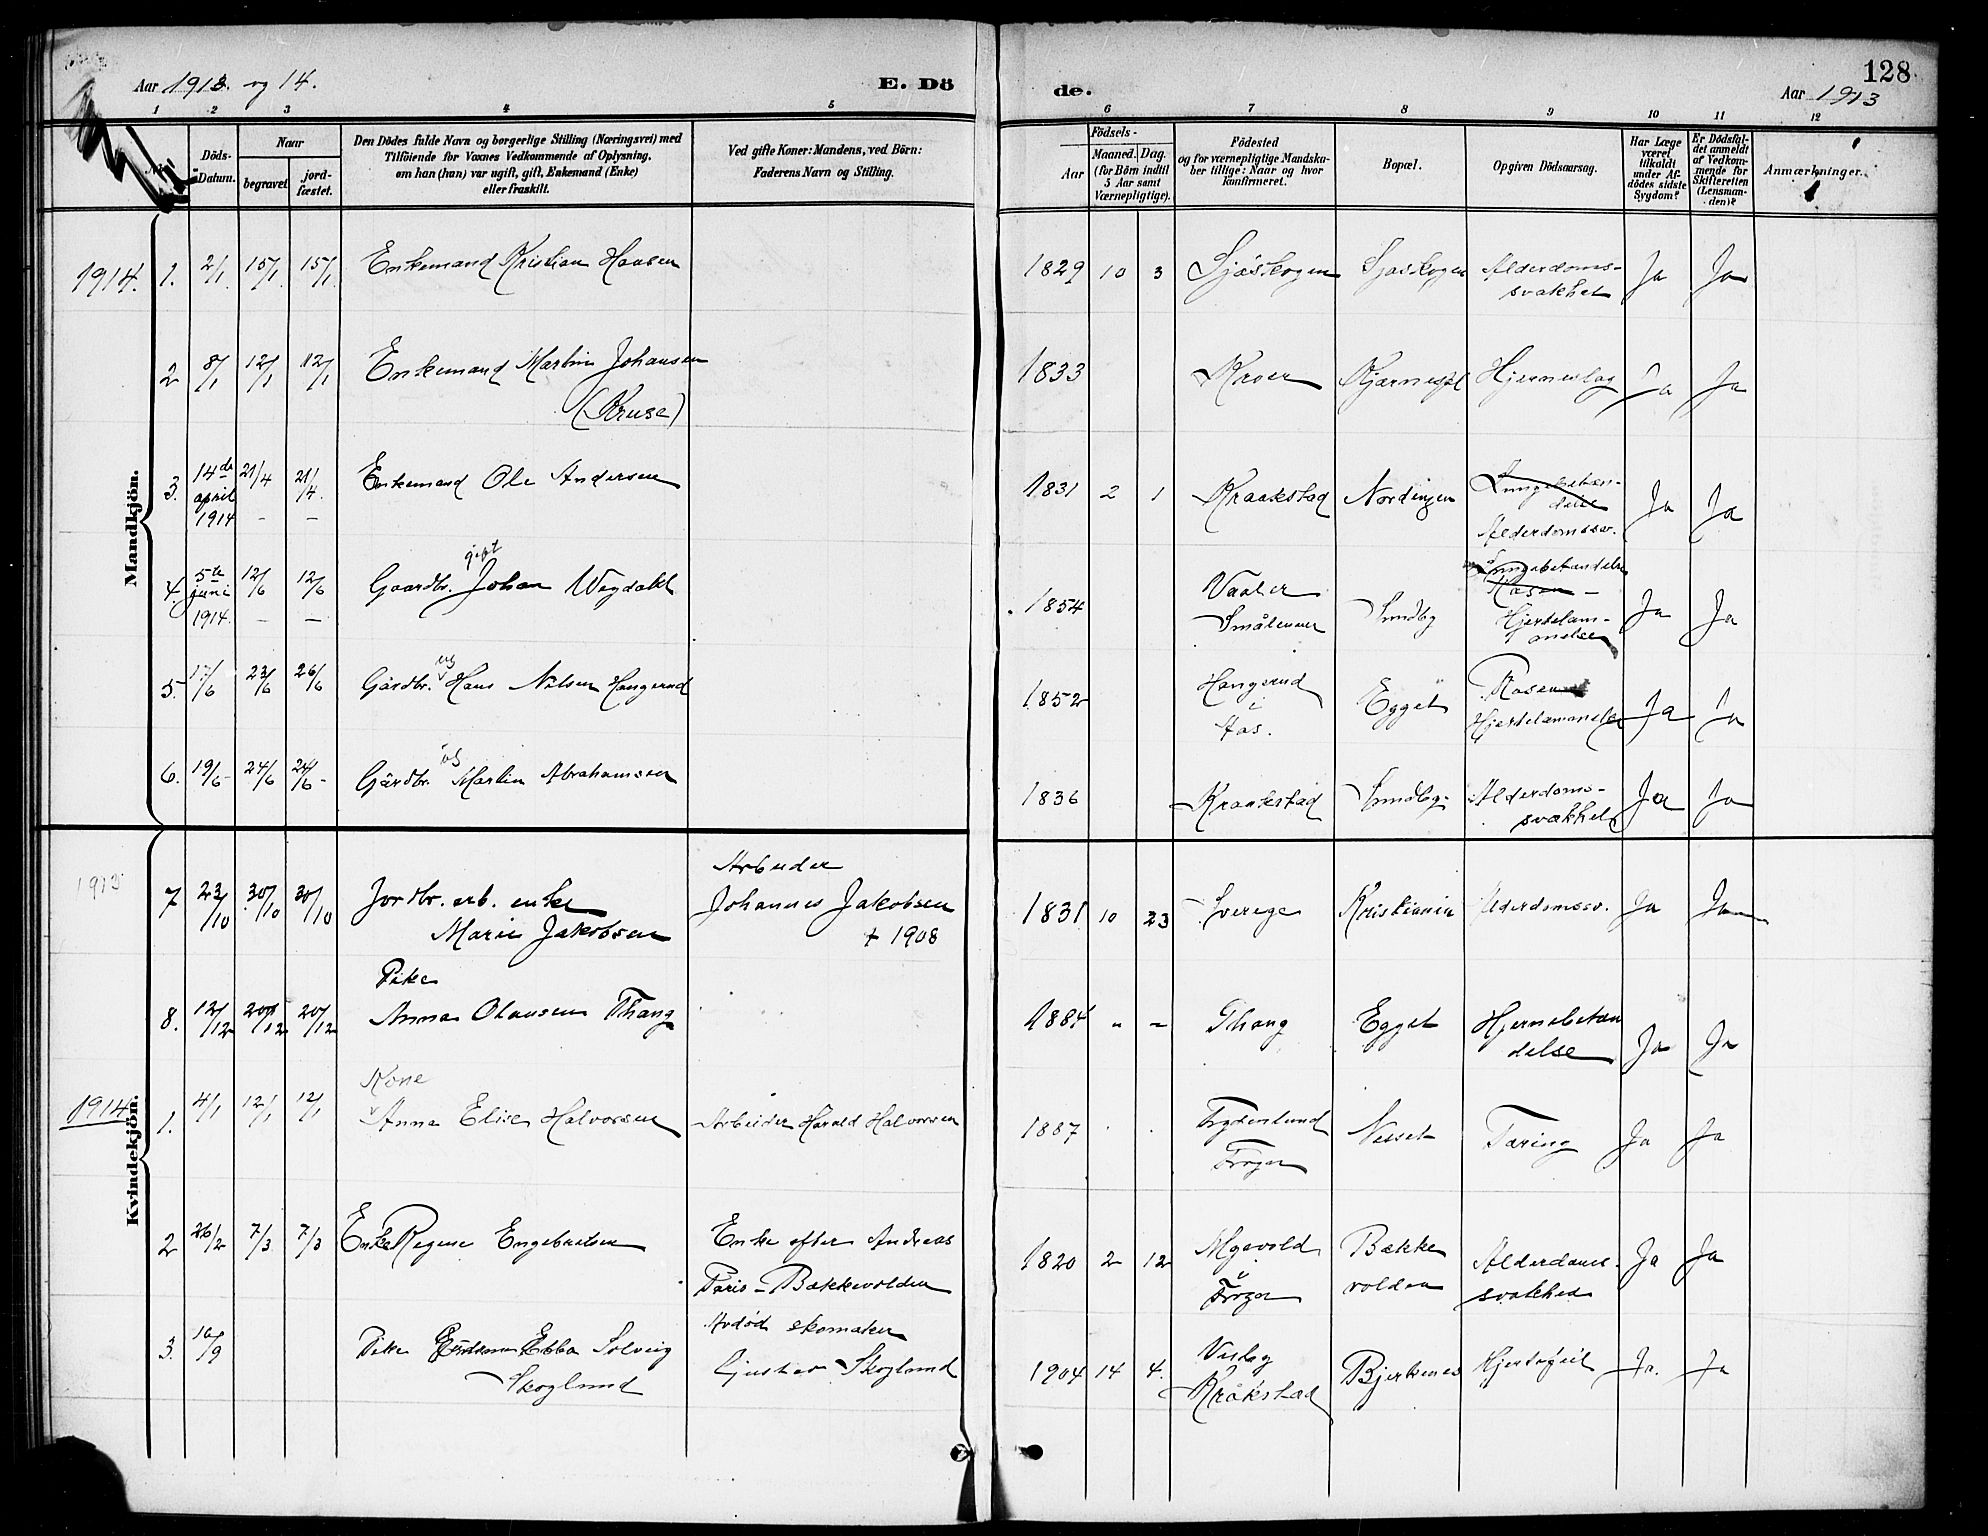 Aar 1913 og 14.
E. Dö
de.
128
Aar 1913
1 2 3 4 5 6 7 8 9 10 11 12
Döds-Datum.
Naar
begravet.
jord-fæstet.
Den Dödes fulde Navn og borgerlige Stilling (Næringsvei) med
Tilföiende for Voxnes Vedkommende af Oplysning,
om han (hun) var ugift, gift, Enkemand (Enke)
eller fraskilt.
Ved gifte Koner: Mandens, ved Börn:
Faderens Navn og Stilling.
Födsels-
Aar
Maaned. Dag.
(for Börn indtil
5 Aar samt
Værnepligtige).
Födested
og for værnepligtige Mandska-
ber tillige: Naar og hvor
konfirmeret.
Bopæl.
Opgiven Dödsaarsag.
Har Læge
været
tilkaldt
under Af-
dödes sidste
Sygdom?
Er Dödsfal-
det anmeldt
af Vedkom-
mende for
Skifteretten
(Lensman-
den)?
Anmærkninger.
Mandkjön.
1914. 1. 2/1. 15/1. 15/1. Enkemand Kristian Hansen 1829 10 3 Sjöskogen Sjøskogen Alderdoms-
svakhet Ja Ja
2 8/1 12/1 12/1 Enkemand Martin Johansen 1833 Kroer Kjærnes Hjerneslag Ja Ja
(Kruse)
3. 14de april 1914 21/4 - 21/4. - Enkemand Ole Andersen 1831 2 1 Kraakstad Nordingen Lungebetæn-
delse
Alderdomssv. Ja Ja
4. 5te juni 1914. 12/6 - 12/6 - Gaardbr. gift Johan Wegdahl 1854 Vaaler
Smålenene Sundby Lungebetændelse
Rosen -
Hjertelam-
melse Ja Ja
5. 17/6 23/6 26/6 Gårdbr. ug Hans Nilsen Haugerud 1852 Haugerud
i
Aas. Egget Rosen
Hjertelammelse Ja Ja
6. 19/6- 24/6 24/6- Gårdbr. Martin Abrahamsen 1836 Kraakstad Sundby Alderdoms-
svakhet Ja Ja
Kvindekjön.
1913 7 23/10 30/10 30/10 Jordbr. arb. enke
Marie Jakobsen Arbeider
Johannes Jakobsen
+ 1908 1831 10 23 Sverege Kristiania Alderdomssv. Ja Ja
8. 12/12 20/12 20/12 Pike
Anna Olausen Thang 1884 " - Thang Egget Hjernebetæn
delse Ja Ja
1914 1. 4/1 12/1 12/1 Kone
Anna Elise Halvorsen Arbeider Harald Halvorsen 1887 Frydenlund
Frogn Nesset Tæring Ja Ja
2 26/2 7/3 7/3 Enke Regine Engebretsen Enke efter Andreas
Paris - Bækkevolden 1820 2 12 Myrvold
i
Frogn Bække
volden Alderdoms-
svakhed Ja Ja
3. 10/9 Pike Ebba Solveig
Skoglund Avdød skomaker
Gustav Skoglund 1904 14 4. Vestby
Kråkstad Bjerkenes Hjertefeil Ja. Ja